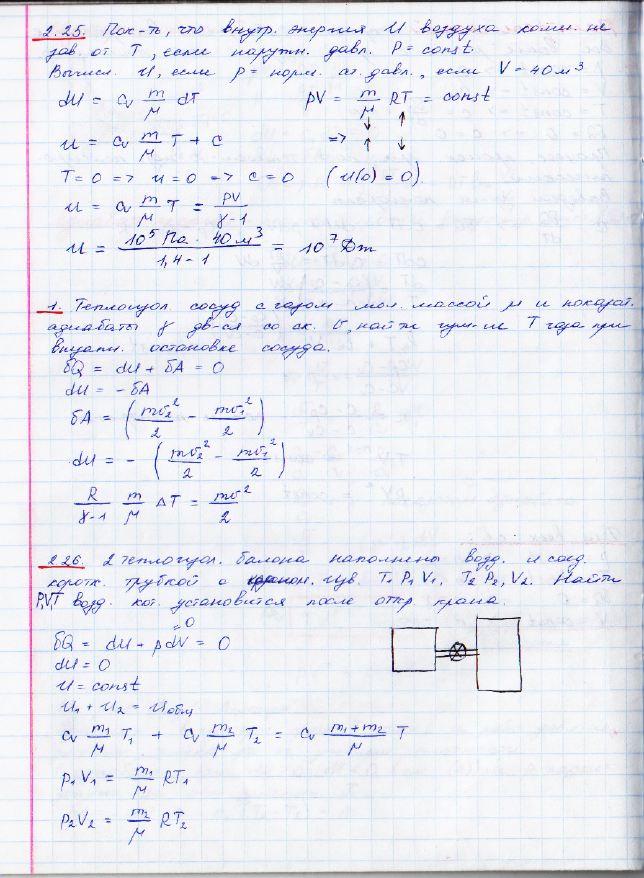 2.25. Пок-ть, что внутр. энергия U воздуха комн. не
зав. от T, если наружн. давл. P = const.
Вычисл. U, если p = норм. ат. давл., если V = 40 м³
dU = Cv m/μ dT      pV = m/μ RT = const
U = Cv m/μ T + C      => ↓↑ ↑↓
T = 0 => U = 0 => C = 0   (U(0) = 0).
U = Cv m/μ T = PV/(γ-1)
U = (10⁵ Па · 40 м³)/(1,4 - 1) = 10⁷ Дж
1. Теплоизол сосуд с газом мол. массой μ и показат.
адиабаты γ дв-ся со ск. υ, найти изм-ие T газа при
внезапн. остановке сосуда.
δQ = dU + δA = 0
dU = - δA
δA = (mυ₂²/2 - mυ₁²/2)
dU = - (mυ₂²/2 - mυ₁²/2)
R/(γ-1) m/μ ΔT = mυ²/2
2.26. 2 теплоизол. балона наполнены возд. и соед.
коротк. трубкой с краном. Изв. T₁ P₁ V₁, T₂ P₂, V₂. Найти
P,V,T возд. кот. установится после откр крана.
δQ = dU + pdV = 0
= 0
dU = 0
U = const
U₁ + U₂ = Uобщ
Cv m₁/μ T₁ + Cv m₂/μ T₂ = Cv (m₁+m₂)/μ T
P₁V₁ = m₁/μ RT₁
P₂V₂ = m₂/μ RT₂